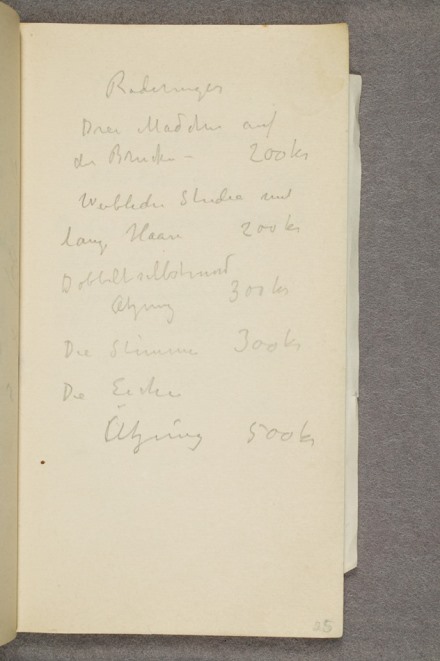 Radierungen
Drei Mädchen auf
der Brücke – 200 kr
Weibliche Studie mit
lang. Haar 200 kr
Dobbelt selbstmord
Ätzung 300 kr
Die Stimme 300 kr
Die
Ätzung 500 kr
25